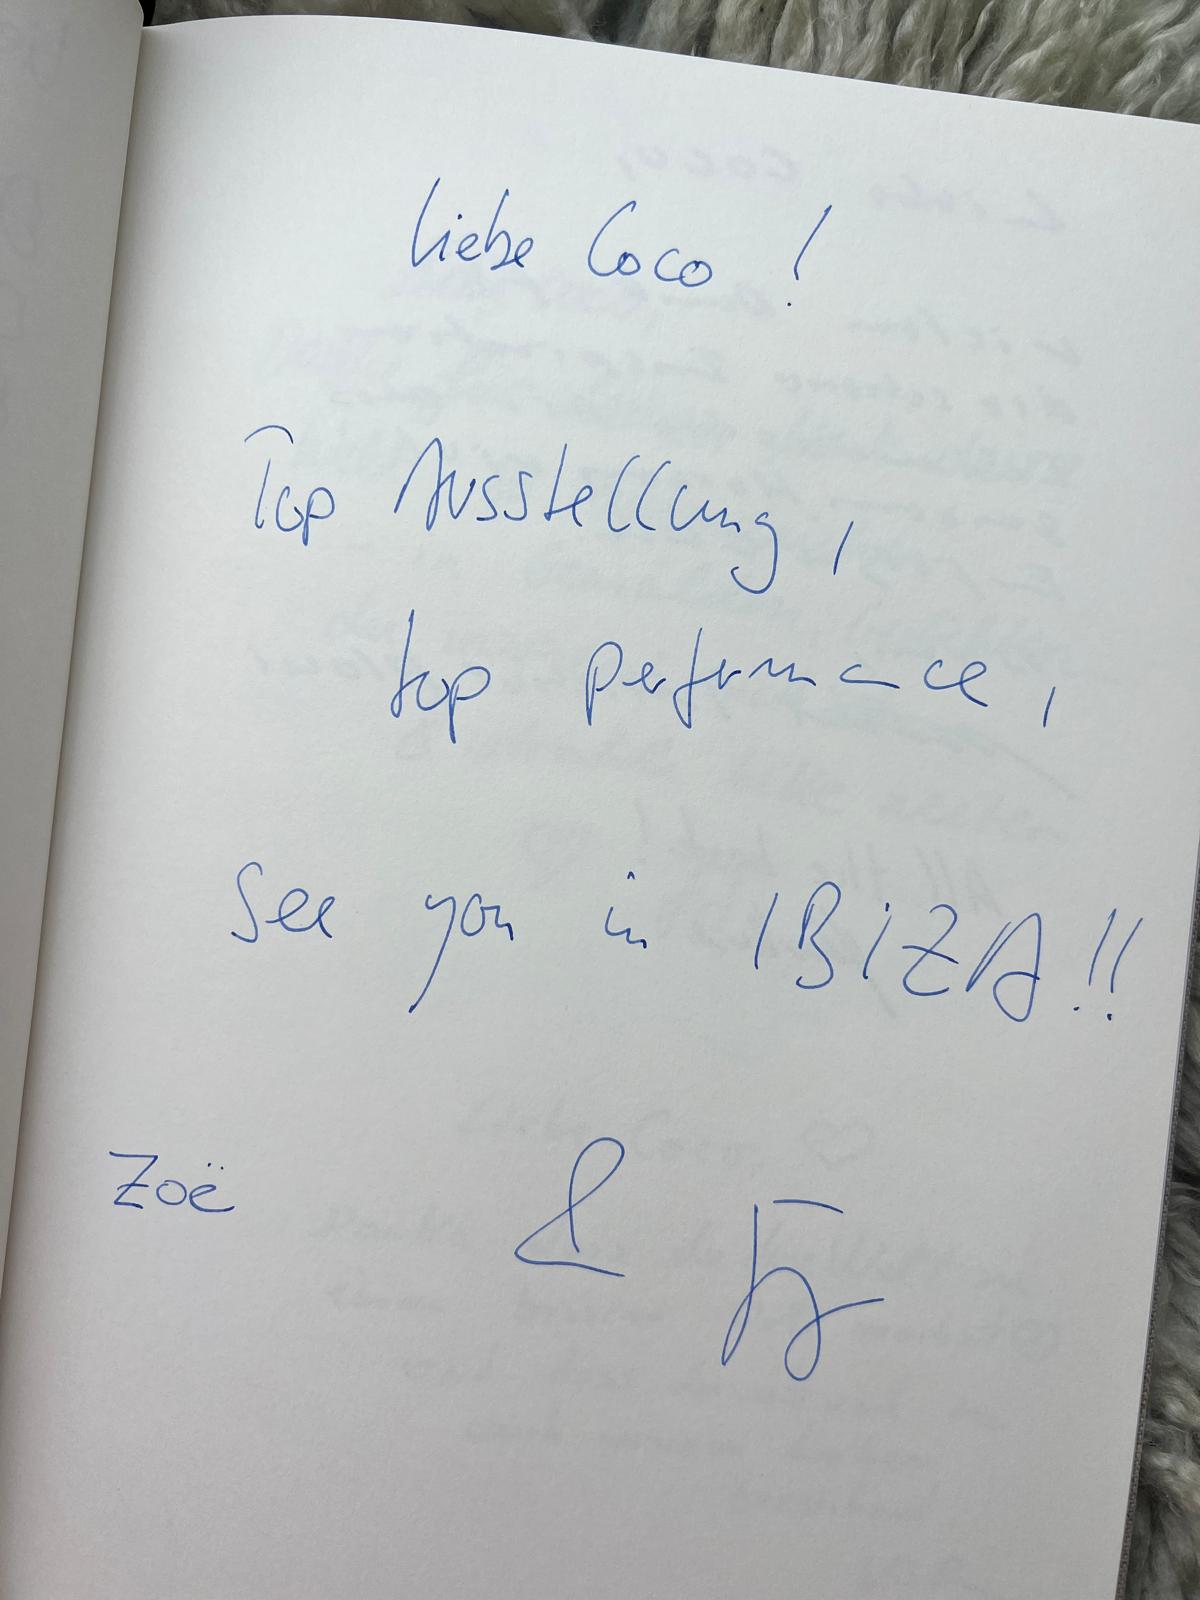 Liebe Coco !
Top Ausstellung ,
top performance ,
See you in IBIZA !!
Zoë &